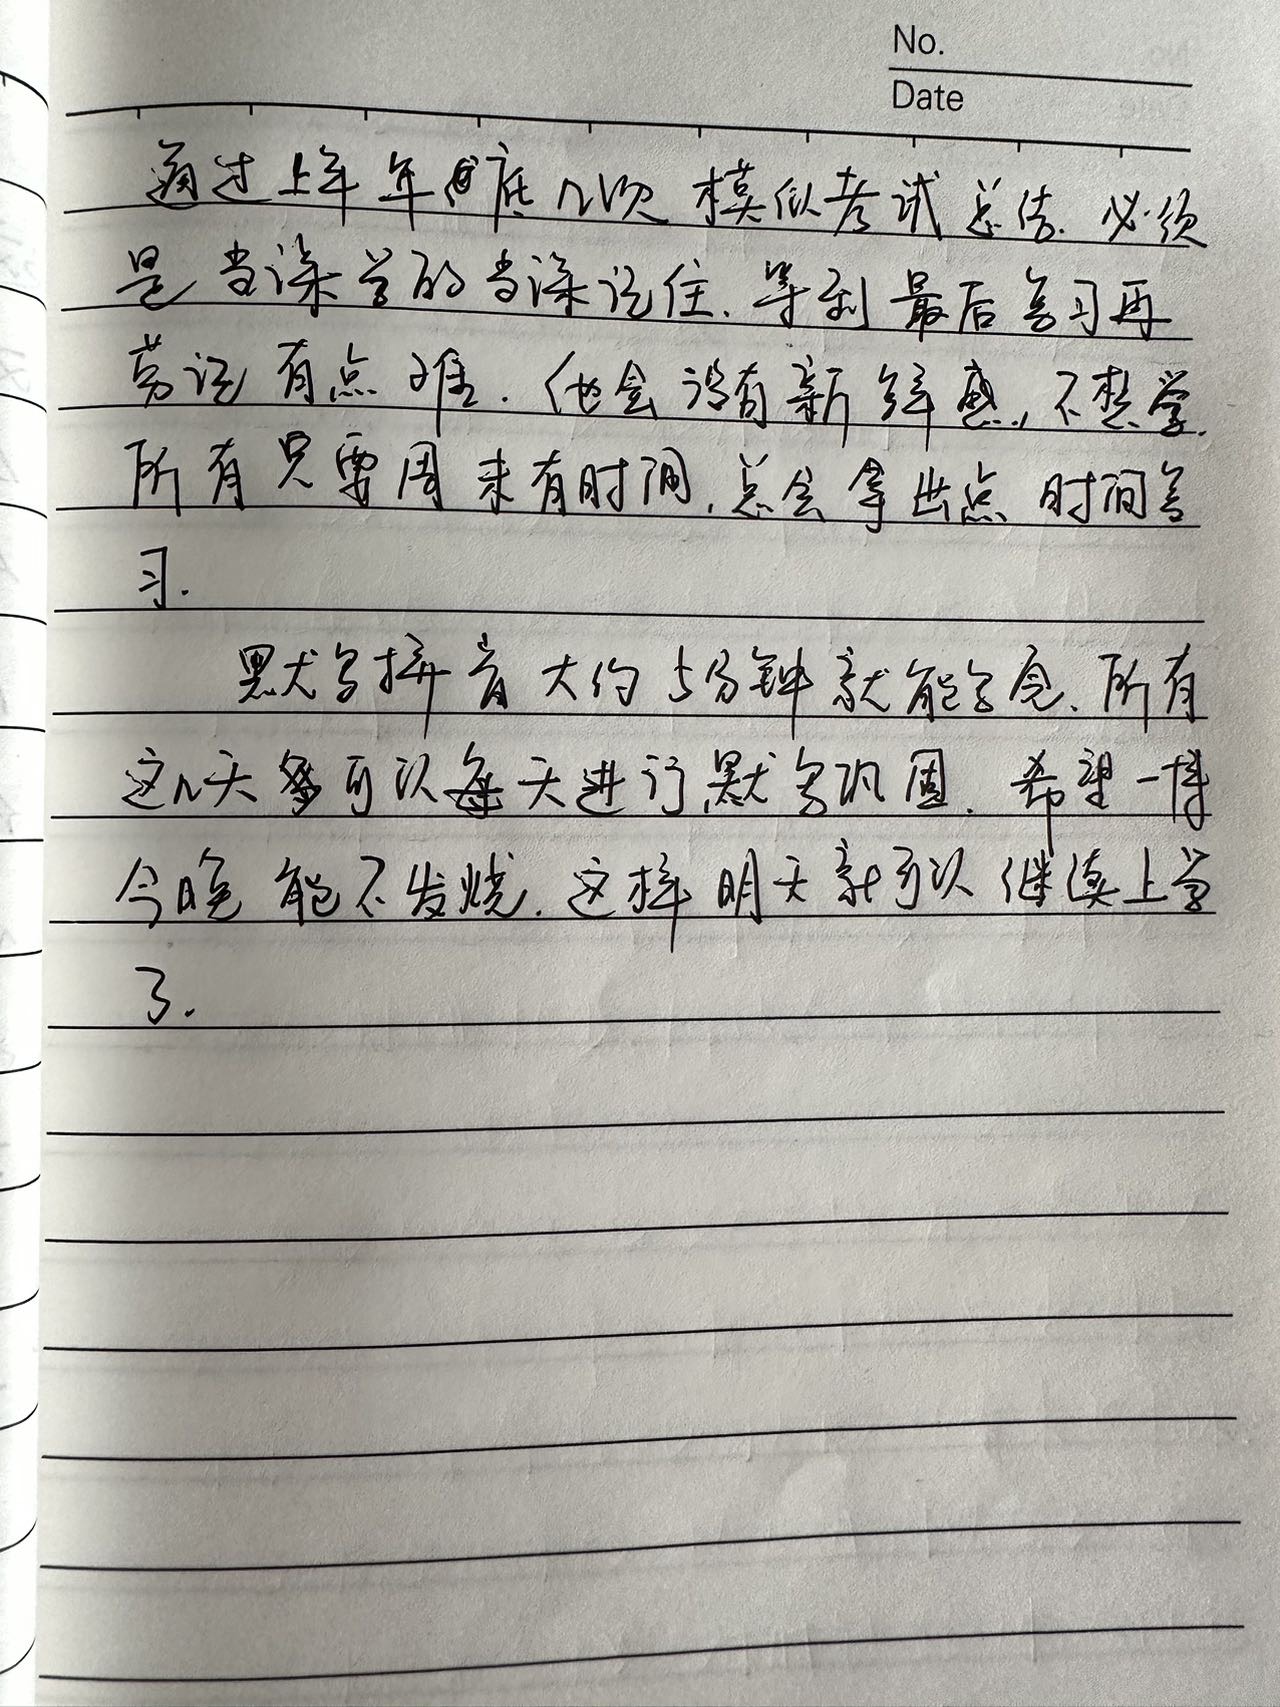 No.
Date
通过上年年底几次模似考试总结.必须
是当课学的当课记住.等到最后复习再
背记有点难.他会没有新鲜感,不想学.
所有只要周末有时间,总会拿出点时间复
习.
默写拼音大约5分钟就能写完.所有
这几天可以每天进行默写巩固.希望一博
今晚能不发烧.这样明天就可以继续上学
了.